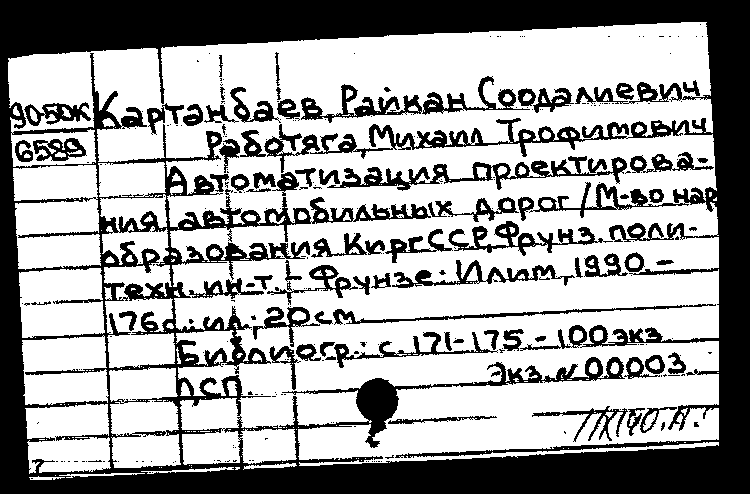 90-50К Картанбаев, Райкан Соодалиевич
6589 Работяга, Михаил Трофимович
Автоматизация проектирова-
ния автомобильных дорог / М-во нар
образования КиргССР, Фрунз. поли-
техн. ин-т. - Фрунзе: Илим, 1990. -
176с.: ил.; 20см.
Библиогр.: с. 171-175. - 100экз
ДСП. Экз. № 00003.